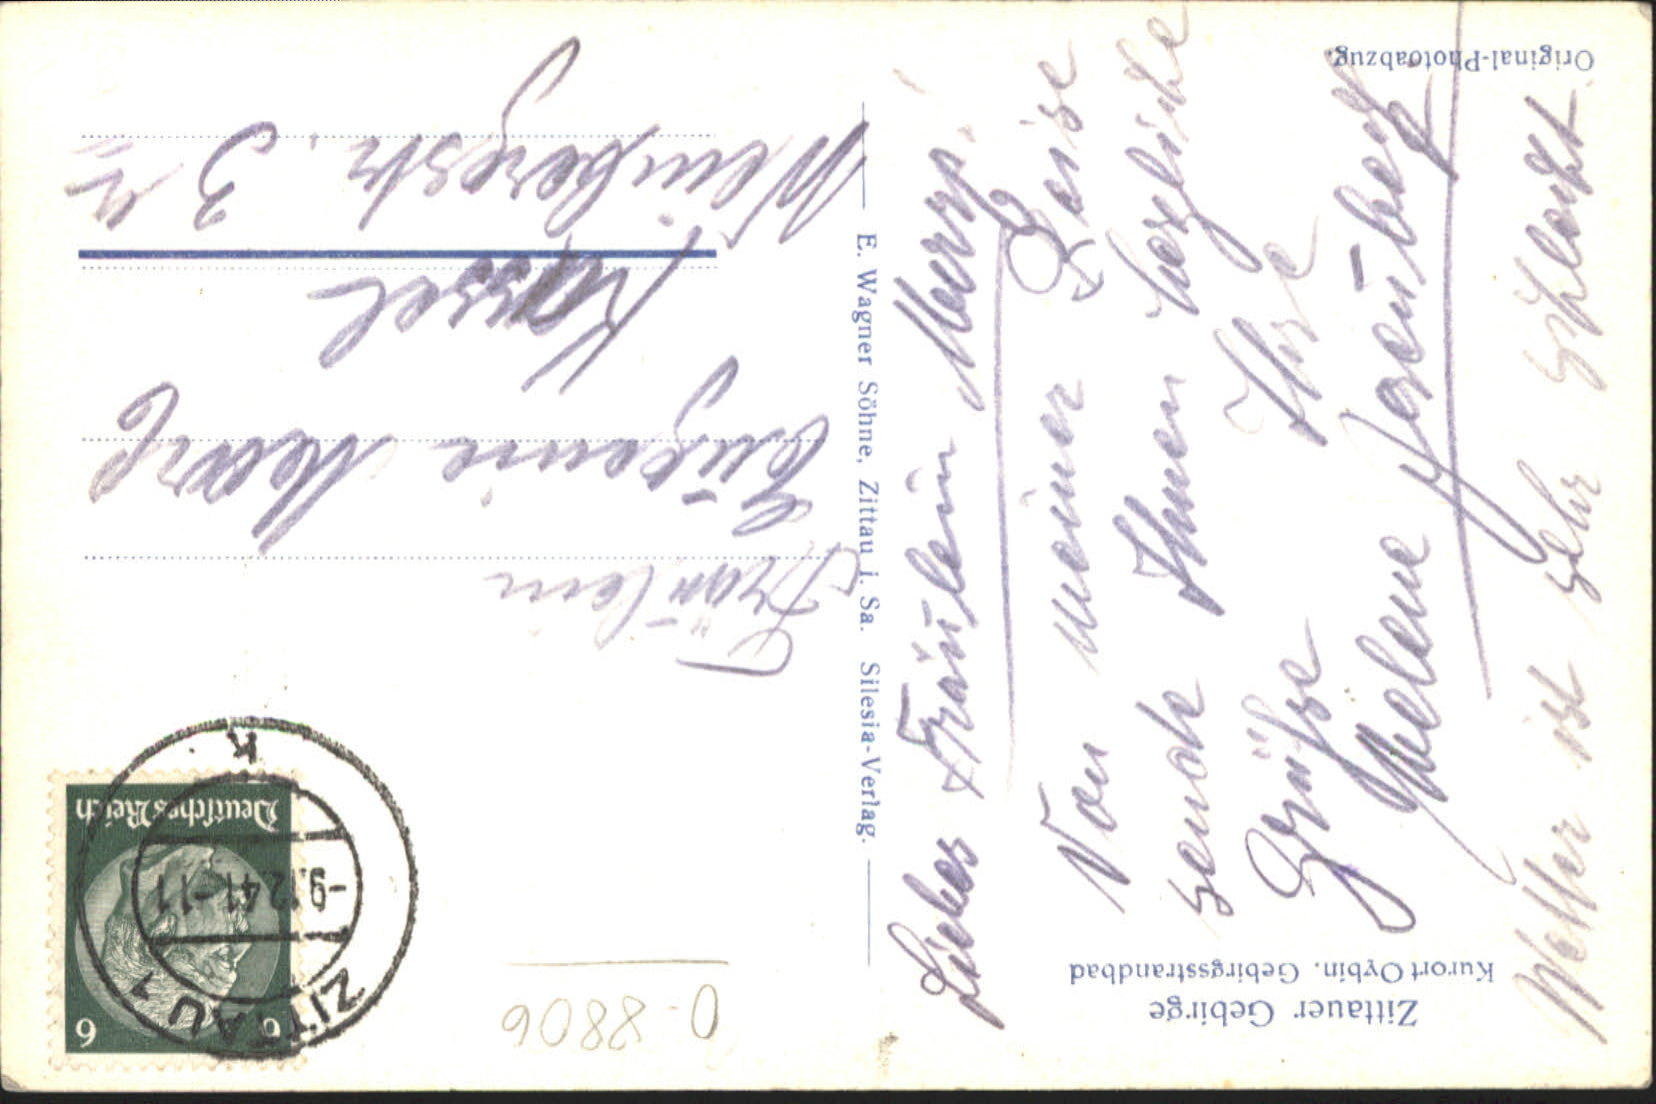 Zittauer Gebirge
Kurort Oybin. Gebirgsstrandbad
Original-Photoabzug.
E. Wagner Söhne, Zittau i. Sa. Silesia-Verlag.
Liebes Fräulein
Von meiner Reise
sende Ihnen herzliche
Grüße Ihre
Helene
Wetter ist sehr schlecht
Deutsches Reich
6
6
ZITTAU 1
-9.12.41-11
K
Fräulein
Eugenie
Kassel
Weinbergstr. 3
0-8806